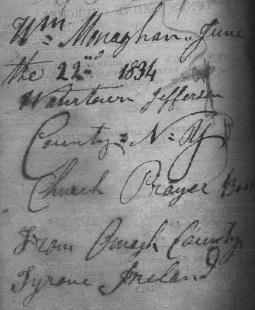 Wm. Monaghan. June
the 22nd 1834
Watertown Jefferson
County = N = Y
Church Prayer Book
From Omagh County
Tyrone Ireland